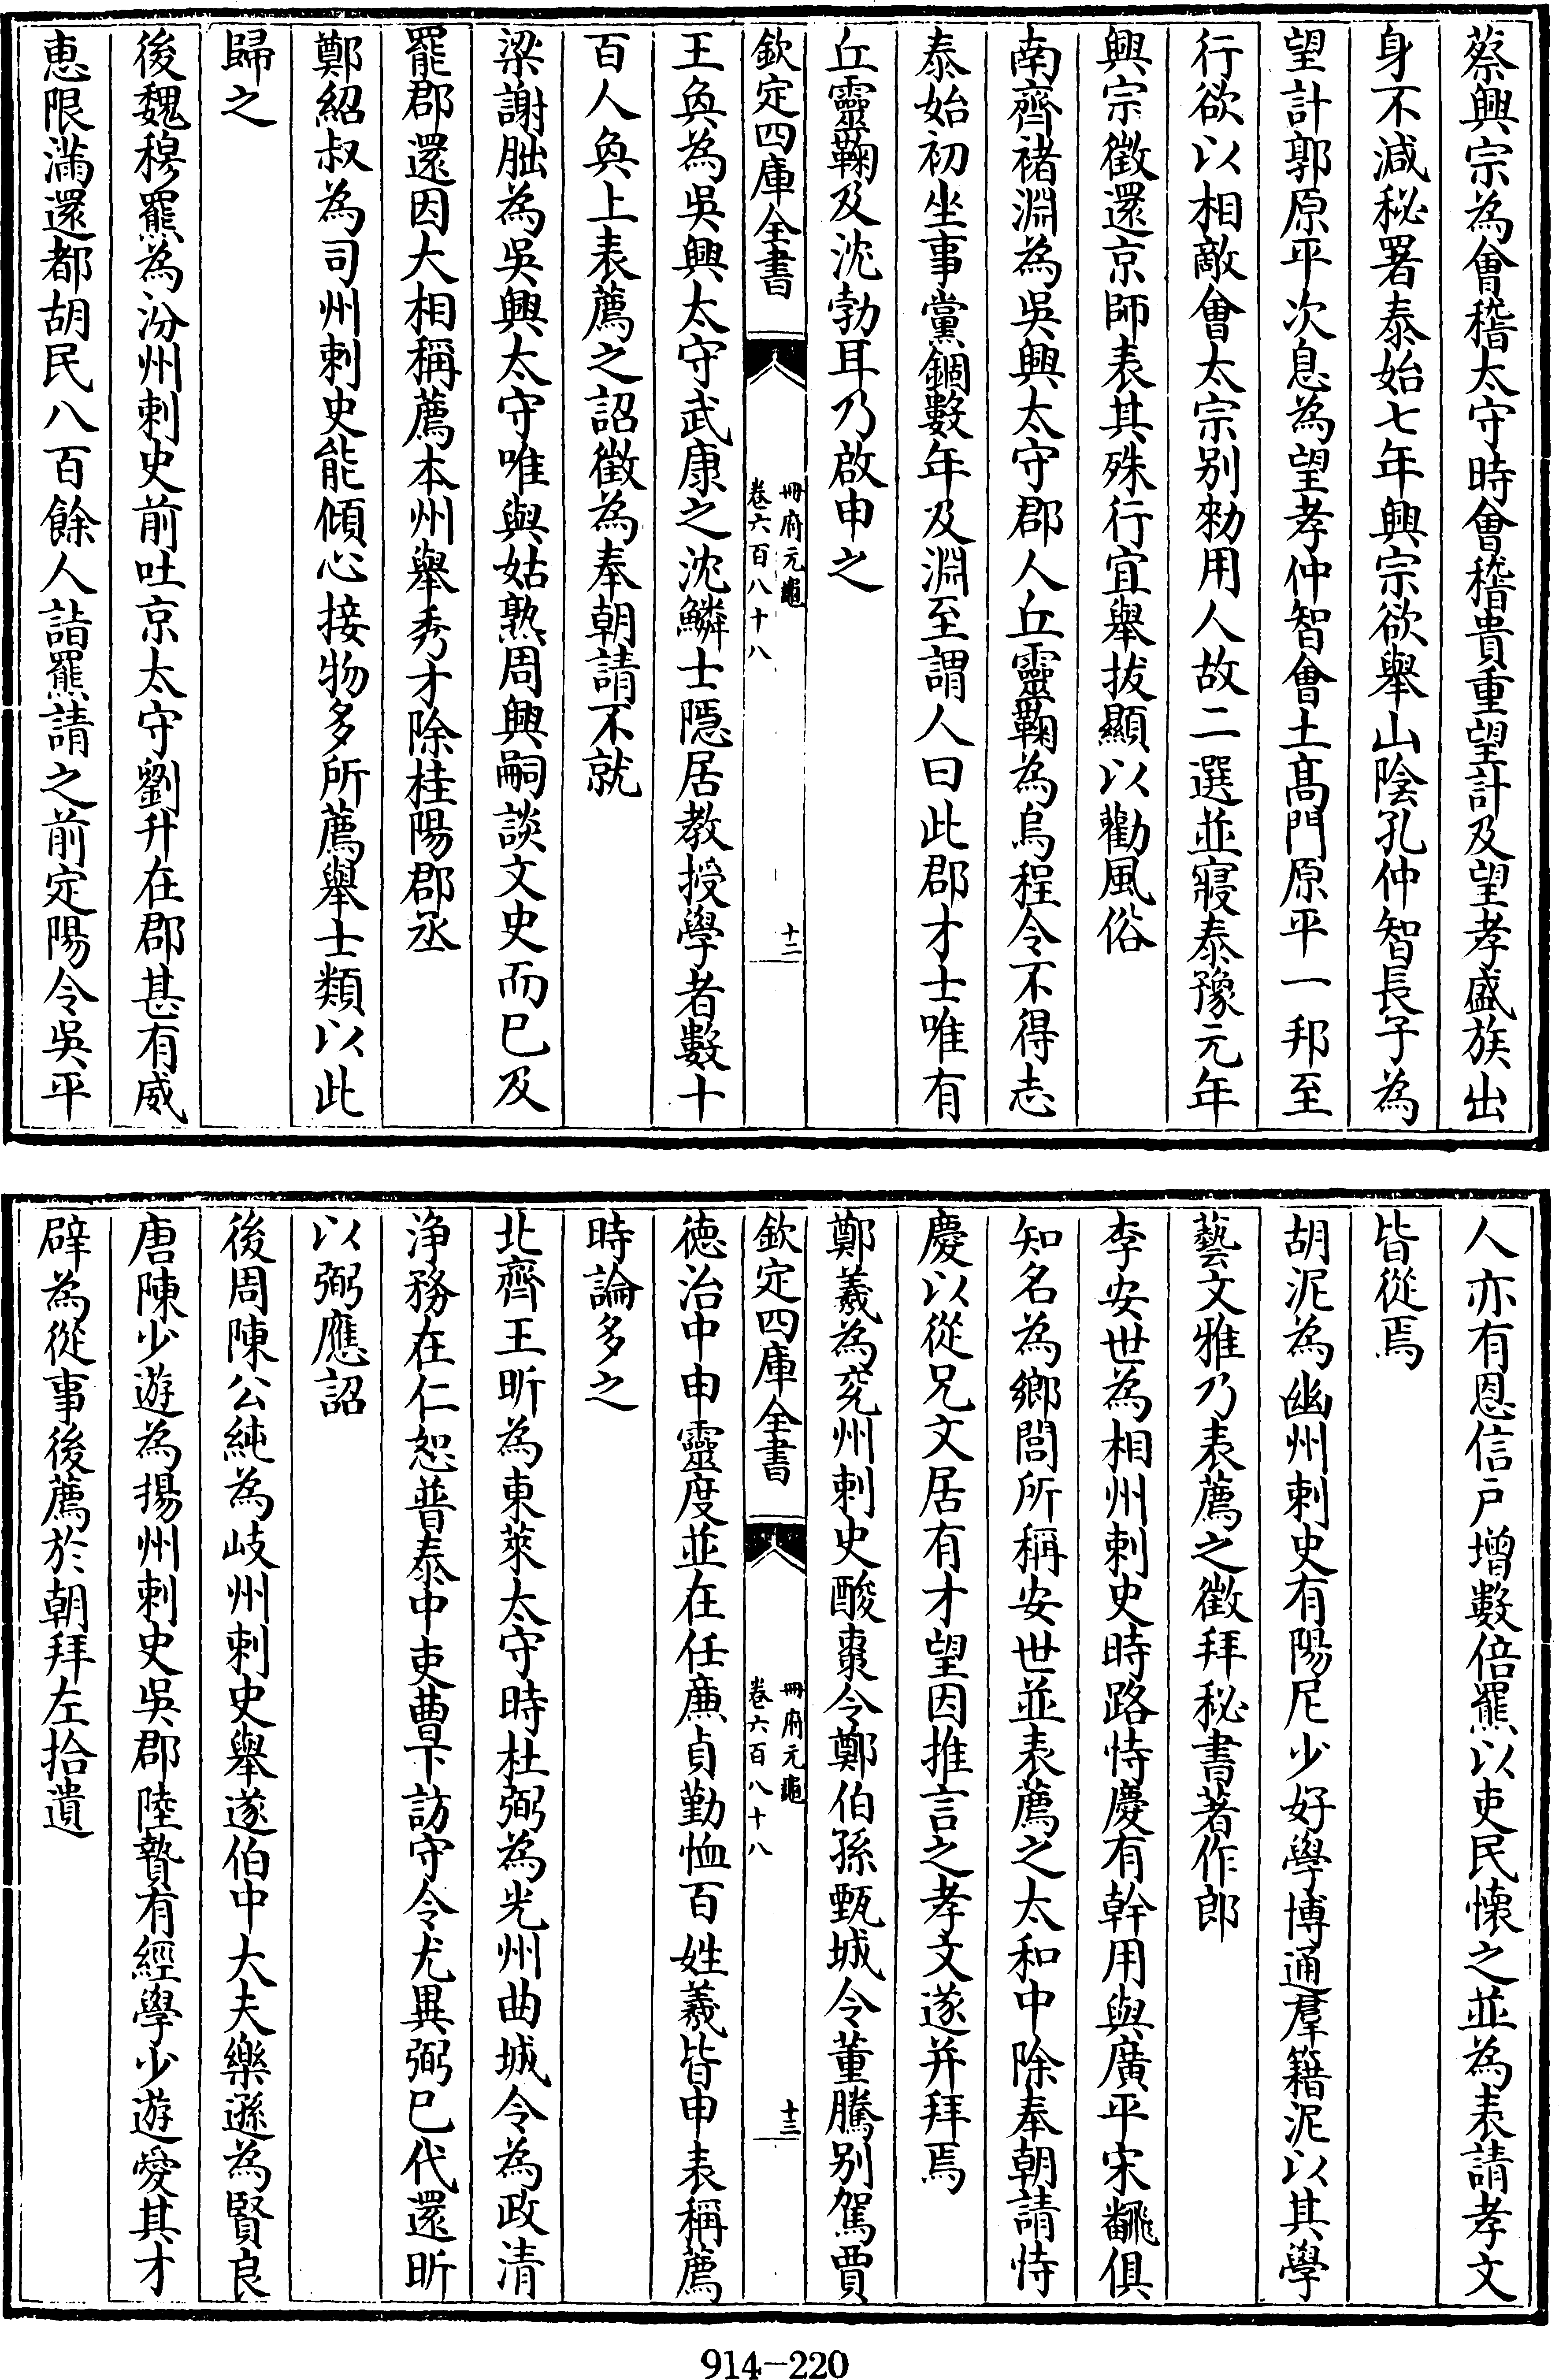 蔡興宗為會稽太守時會稽貴重望計及望孝盛族出
身不減秘署泰始七年興宗欲舉山陰孔仲智長子為
望計郭原平次息為望孝仲智會土髙門原平一邦至
行欲以相敵會太宗别勑用人故二選並寢泰豫元年
興宗徵還京師表其殊行宜舉拔顯以勸風俗
南齊禇淵為吳興太守郡人丘靈鞠為烏程令不得志
泰始初坐事黨錮數年及淵至謂人曰此郡才士唯有
丘靈鞠及沈勃耳乃啟申之
欽定四庫全書
冊府元龜
卷六百八十八
十二
王奐為吳興太守武康之沈鱗士隠居教授學者數十
百人奐上表薦之詔徵為奉朝請不就
梁謝朏為吳興太守唯與姑熟周興嗣談文史而已及
罷郡還因大相稱薦本州舉秀才除桂陽郡丞
鄭紹叔為司州刺史能傾心接物多所薦舉士類以此
歸之
後魏穆羆為汾州刺史前吐京太守劉升在郡甚有威
惠限滿還都胡民八百餘人詣羆請之前定陽令吳平
人亦有恩信戸增數倍羆以吏民懐之並為表請孝文
皆從焉
胡泥為幽州刺史有陽尼少好學博通羣籍泥以其學
藝文雅乃表薦之徵拜秘書著作郎
李安世為相州刺史時路恃慶有幹用與廣平宋飜俱
知名為鄉閭所稱安世並表薦之太和中除奉朝請恃
慶以從兄文居有才望因推言之孝文遂并拜焉
鄭羲為兖州刺史酸棗令鄭伯孫甄城令董騰别駕賈
欽定四庫全書
冊府元龜
卷六百八十八
十三
徳治中申靈度並在任亷貞勤恤百姓羲皆申表稱薦
時論多之
北齊王昕為東萊太守時杜弼為光州曲城令為政清
浄務在仁恕普泰中吏曹下訪守令尤異弼已代還昕
以弼應詔
後周陳公純為岐州刺史舉遂伯中大夫樂遜為賢良
唐陳少遊為揚州刺史吳郡陸贄有經學少遊愛其才
辟為從事後薦於朝拜左拾遺
914-220